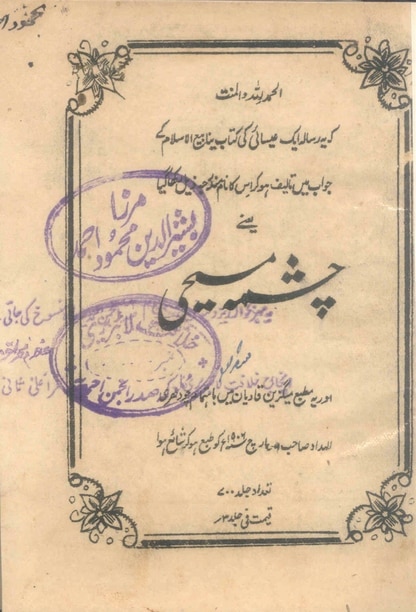 محمود ا
الحمد للہ والمنت
کہ یہ رسالہ ایک عیسائی کی کتاب ینابیع الاسلام کے
جواب میں تالیف ہو کر اس کا نام مندرجہ ذیل رکھا گیا
یعنے
مرزا
بشیر الدین محمود احمد
چشمہ مسیحی
خلافت لائبریری
صدر انجمن احمدیہ
اور یہ مطبع میگزین قادیان میں باہتمام چودھری
الہداد صاحب ۹ مارچ سنہ ۱۹۰۶ء کو طبع ہو کر شائع ہوا
تعداد جلد ۷۰۰
قیمت فی جلد ۳ر